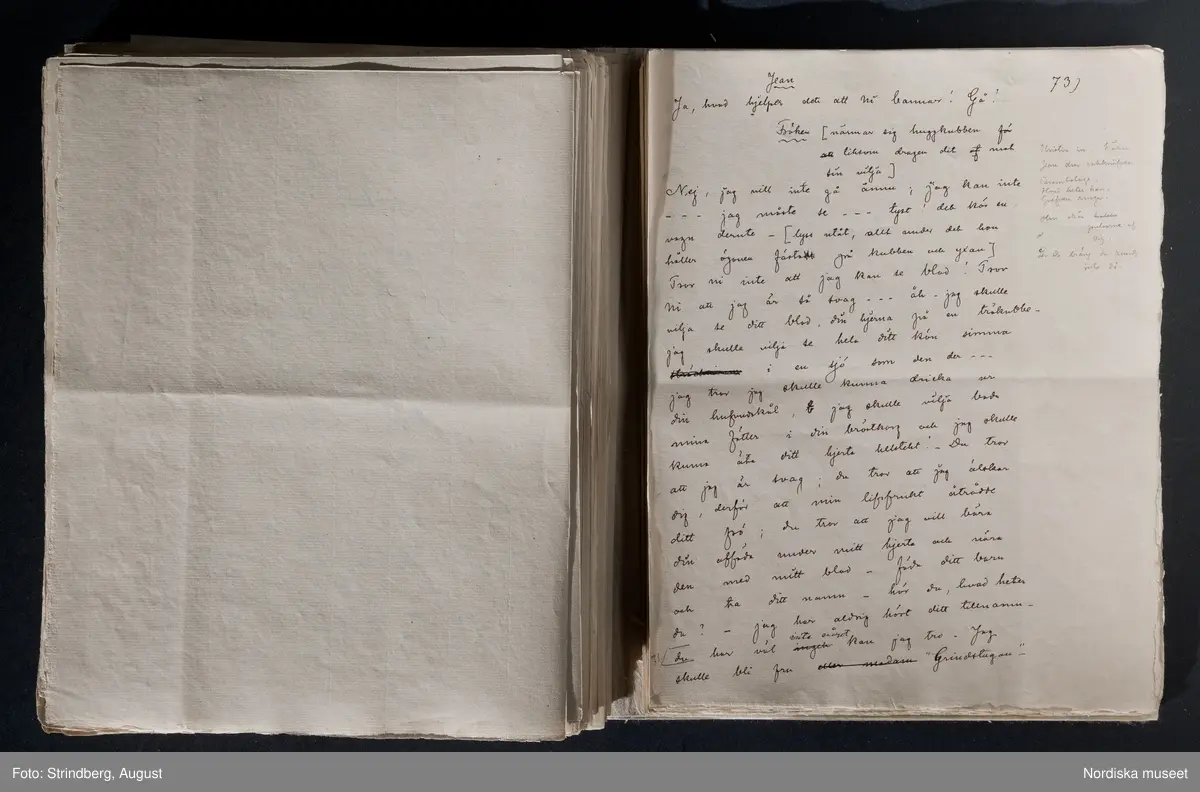 73)
Jean
Ja, hvad hjelper det att Ni bannar! Gå!
Fröken [närmar sig huggkubben för
att liksom dragen dit af mot
sin vilja]
Nej, jag vill inte gå ännu; jag kan inte
- - - jag måste se - - - tyst! det kör en
vagn derute - [lyss utåt, allt under det hon
håller ögonen fästade på kubben och yxan]
Tror ni inte att jag kan se blod! Tror
Ni att jag är så svag - - - åh - jag skulle
vilja se ditt blod, din hjerna på en träkubbe -
jag skulle vilja se hela ditt kön simma
i en sjö som den der - - -
jag tror jag skulle kunna dricka ur
din hufvudskål, jag skulle vilja bada
mina fötter i din bröstkorg och jag skulle
kunna äta ditt hjerta helstekt! - Du tror
att jag är svag; du tror att jag älskar
dig, derför att min lifsfrukt åtrådde
ditt frö; du tror att jag vill bära
din afföda under mitt hjerta och nära
den med mitt blod - föda ditt barn
och ta ditt namn - hör du, hvad heter
du? - jag har aldrig hört ditt tillnamn -
du har väl inte något kan jag tro. Jag
skulle bli fru eller madam "Grindstugan" -
Foto: Strindberg, August
Nordiska museet